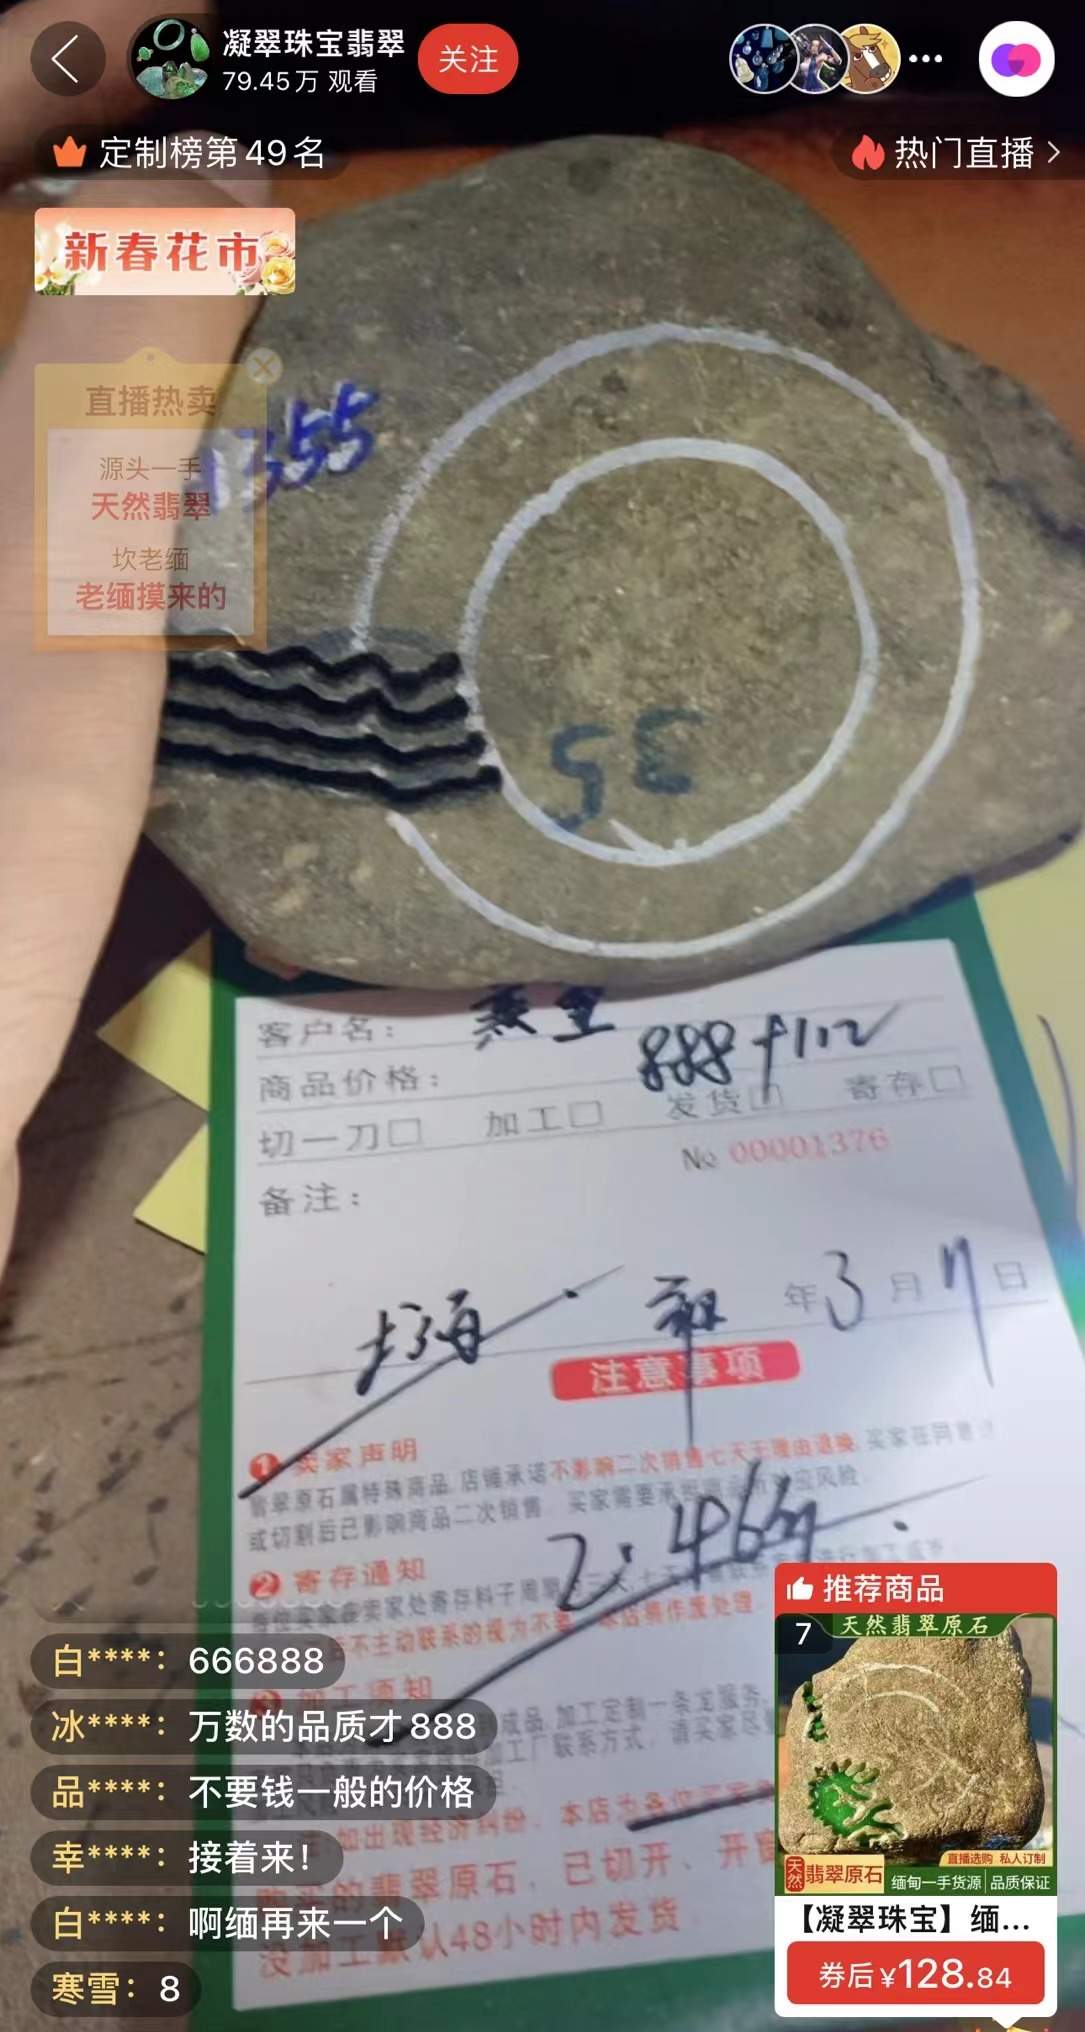 凝翠珠宝翡翠
79.45万 观看
关注
定制榜第49名
热门直播
新春花市
直播热卖
源头一手
天然翡翠
坎老缅
老缅摸来的
1355
35
客户名：
商品价格： 888+112
切一刀 加工 发货 寄存
№ 00001376
备注：
上海
年3月17日
注意事项
1 卖家声明
翡翠原石属特殊商品,店铺承诺不影响二次销售七天无理由退换,买家在同意
或切割后已影响商品二次销售,买家需要承担
风险
2 寄存通知
2.46
3 加工须知
如出现经济纠纷,本店
的翡翠原石,已切开、开窗
没加工默认48小时内发货
白****：666888
冰****：万数的品质才888
品****：不要钱一般的价格
幸****：接着来！
白****：啊缅再来一个
寒雪：8
推荐商品
7
天然翡翠原石
直播选购 私人订制
天然
翡翠原石
缅甸一手货源 品质保证
【凝翠珠宝】缅...
券后¥128.84